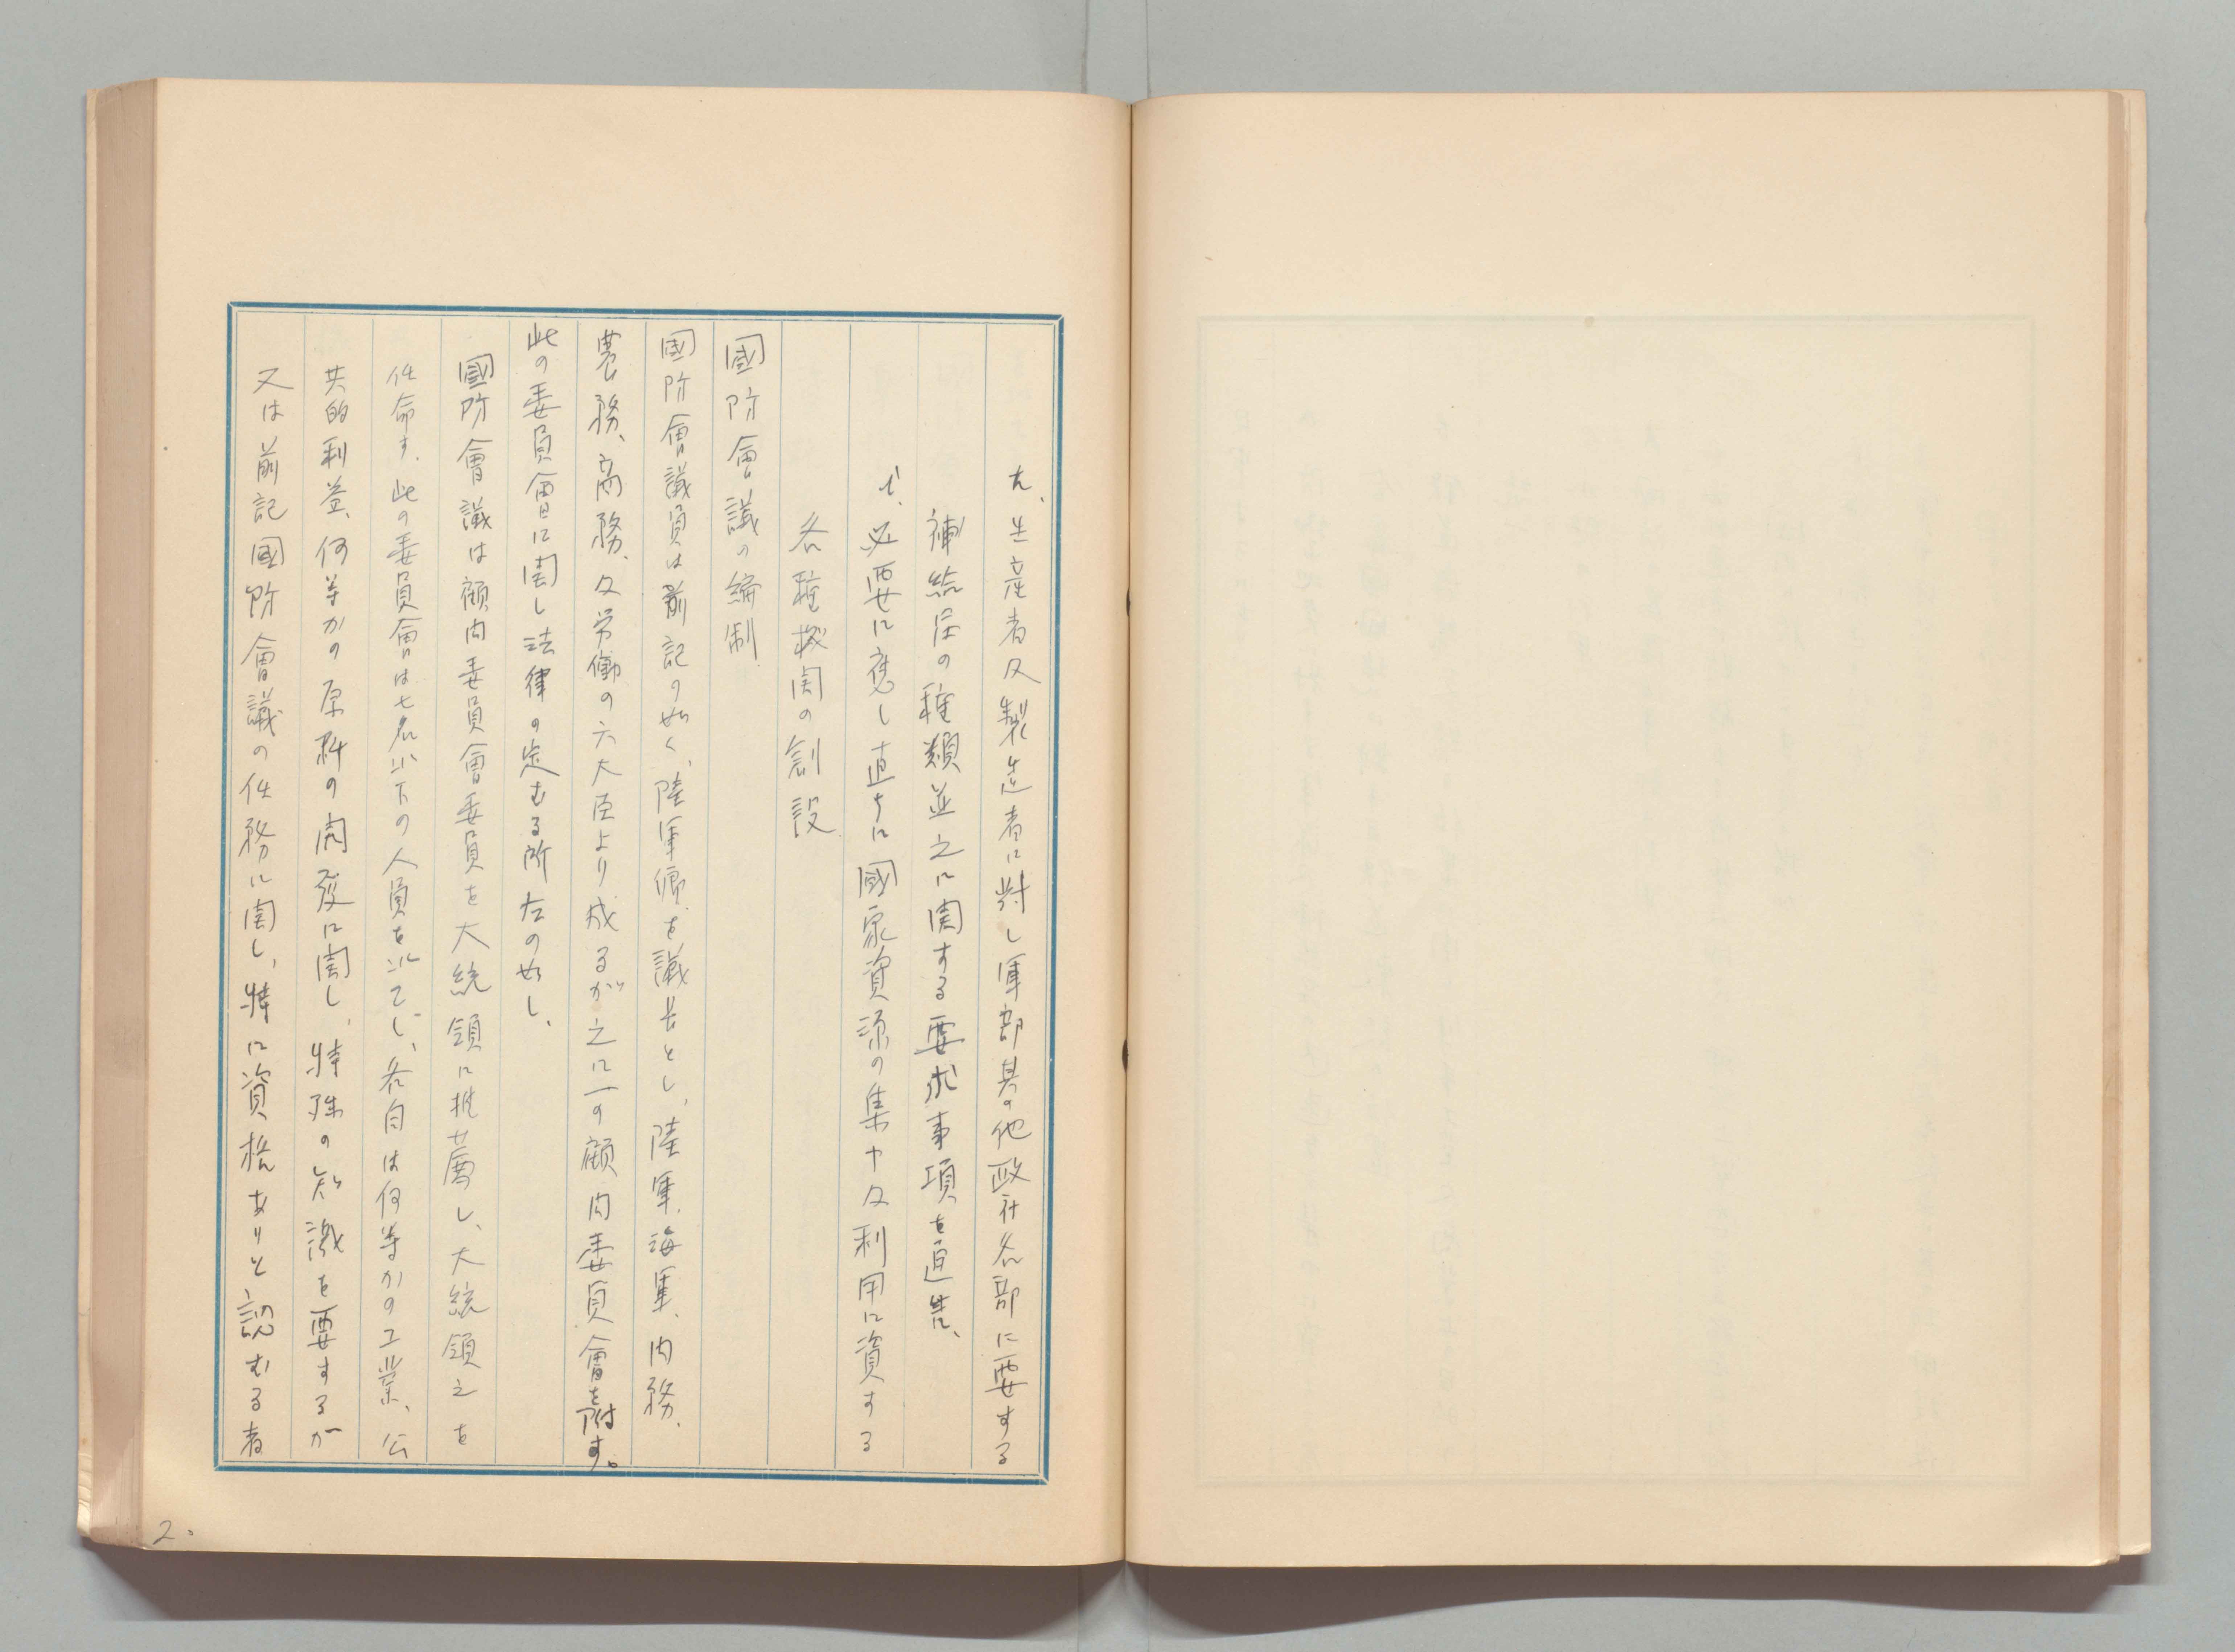 た、生産者及製造者に対し軍部其の他政社各部に要する
補給品の種類並之に関する要求事項を通告、
必要に應し直ちに國家資源の集中及利用に資する
各種機関の創設
國防會議の編制
國防會議員は前記の如く、陸軍卿を議長とし、陸軍、海軍、内務、
農務、商務、及労働の六大臣より成るが之に一の顧問委員會を附す。
此の委員會に関し法律の定むる所左の如し、
國防會議は顧問委員會委員を大統領に推薦し、大統領之を
任命す、此の委員會は七名以下の人員を以てし、各自は何等かの工業、公
共的利益、何等かの原料の開発に関し、特殊の知識を要するが
又は前記國防會議の任務に関し、特に資格ありと認むる者
2。